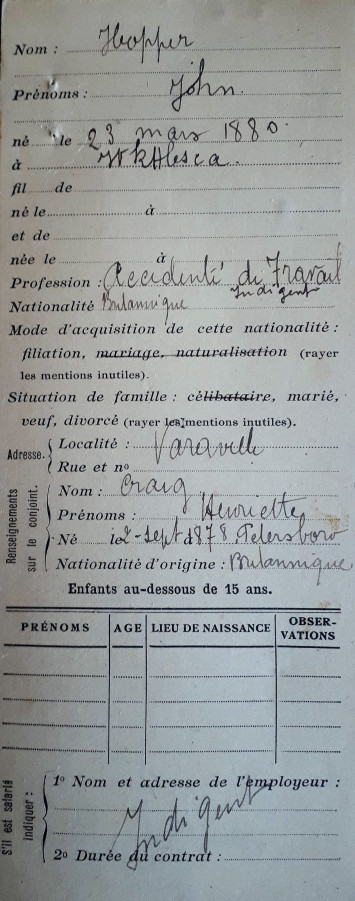 Nom : Hopper
Prénoms : John
né le 23 mars 1880
à
fil de
né le à
et de
née le à
Profession : Accidenté de Travail
Indigent
Nationalité Britannique
Mode d'acquisition de cette nationalité :
filiation, mariage, naturalisation (rayer
les mentions inutiles).
Situation de famille : célibataire, marié,
veuf, divorcé (rayer les mentions inutiles).
Adresse.
Localité : Varaville
Rue et nº
Renseignements
sur le conjoint.
Nom : Craig
Prénoms : Henriette
Né le 2 sept 1878 Petersboro
Nationalité d'origine : Britannique
Enfants au-dessous de 15 ans.
PRÉNOMS AGE LIEU DE NAISSANCE OBSER-
VATIONS
S'il est salarié
indiquer :
1º Nom et adresse de l'employeur :
Indigent
2º Durée du contrat :